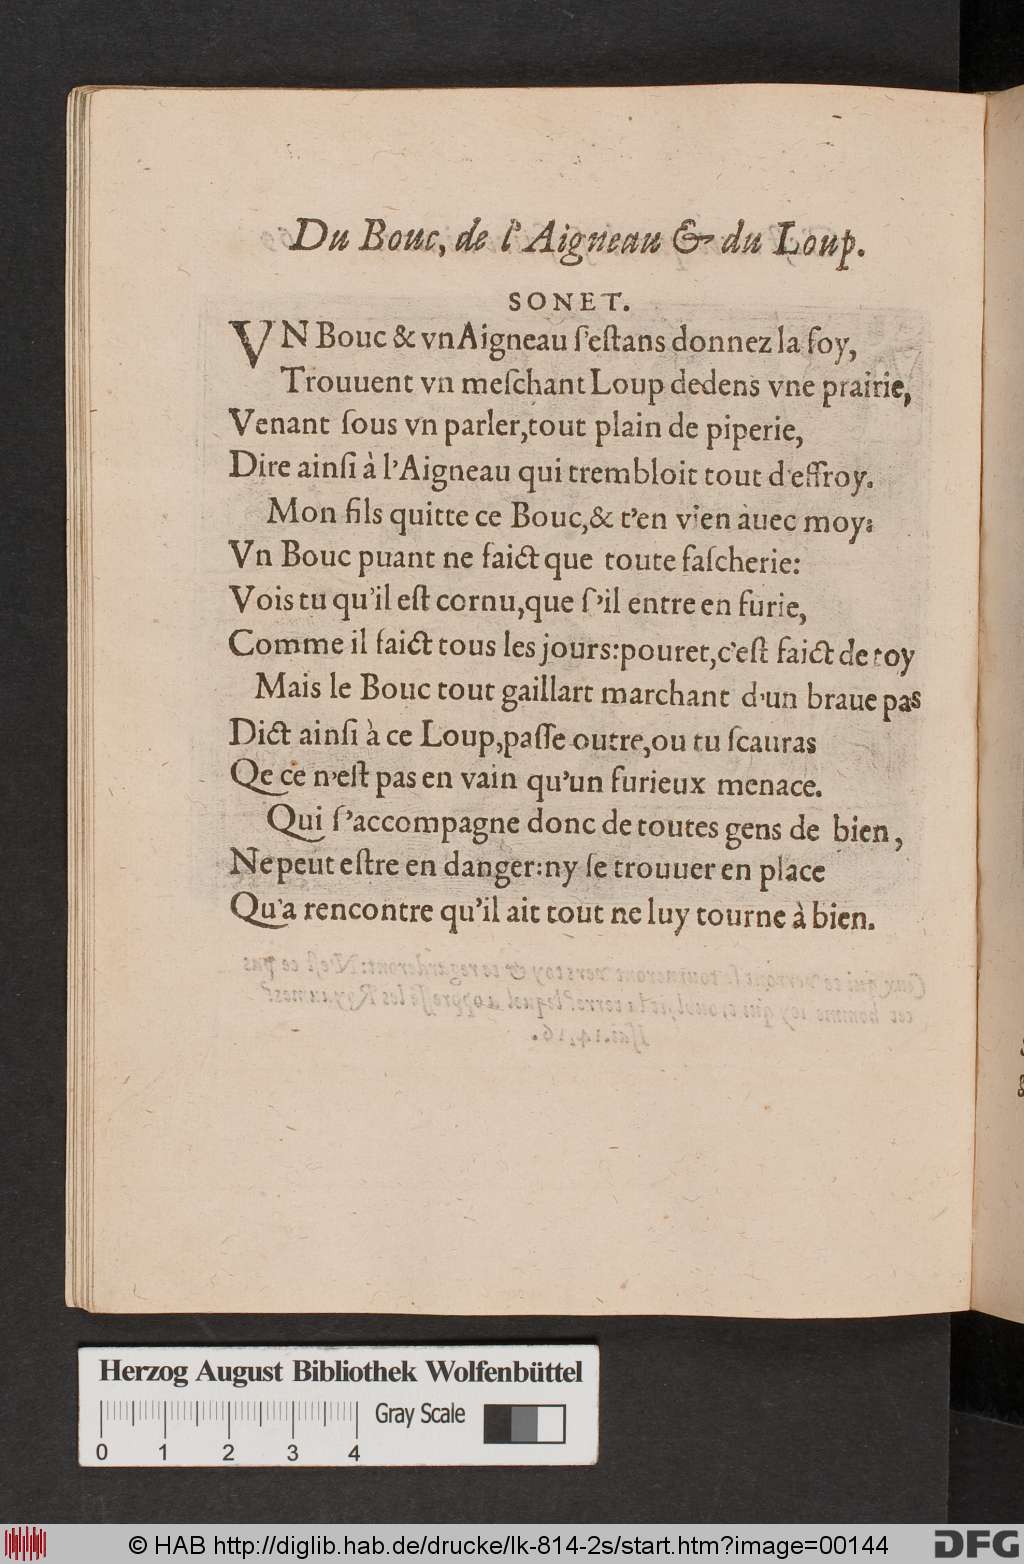 Du Bouc, de l'Aigneau & du Loup.
SONET.
VN Bouc & vn Aigneau s'eſtans donnez la foy,
Trouuent vn meſchant Loup dedens vne prairie,
Venant ſous vn parler, tout plain de piperie,
Dire ainſi à l'Aigneau qui trembloit tout d'effroy.
Mon fils quitte ce Bouc, & t'en vien auec moy:
Vn Bouc puant ne faict que toute faſcherie:
Vois tu qu'il eſt cornu, que ſ'il entre en furie,
Comme il faict tous les jours: pouret, c'eſt faict de toy
Mais le Bouc tout gaillart marchant d'un braue pas
Dict ainſi à ce Loup, paſſe outre, ou tu ſcauras
Qe ce n'eſt pas en vain qu'un furieux menace.
Qui ſ'accompagne donc de toutes gens de bien,
Ne peut eſtre en danger: ny ſe trouuer en place
Qu'a rencontre qu'il ait tout ne luy tourne à bien.
Herzog August Bibliothek Wolfenbüttel
Gray Scale
0 1 2 3 4
© HAB http://diglib.hab.de/drucke/lk-814-2s/start.htm?image=00144
DFG